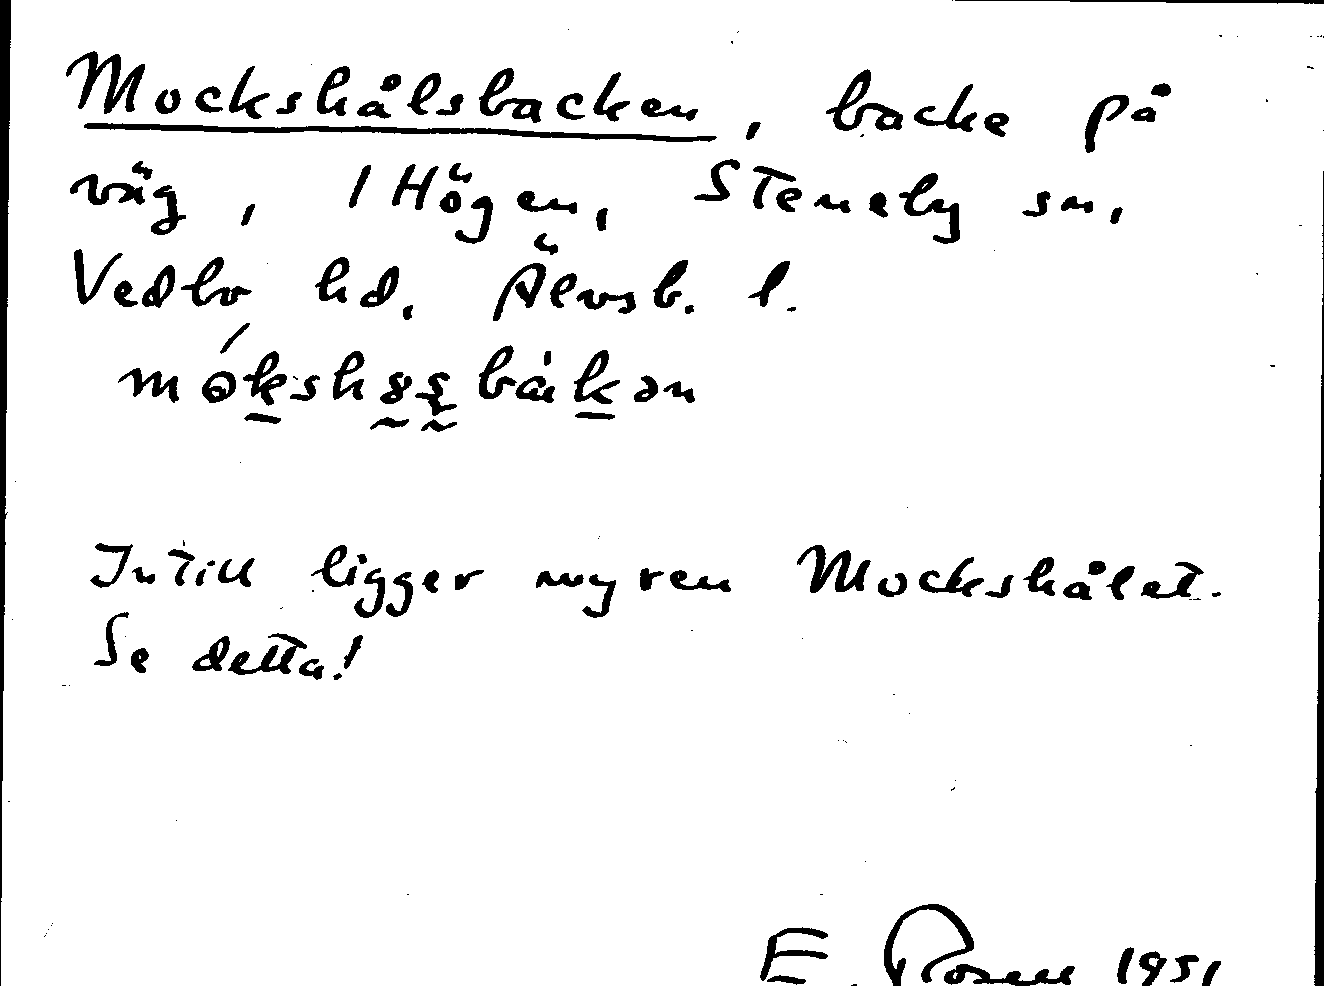 Mockshålsbacken, backe på
väg, 1 Högen, Steneby sn,
Vedbo hd. Älvsb. l.
Intill ligger myren Mockshålet.
Se detta!
E. Rosell 1951